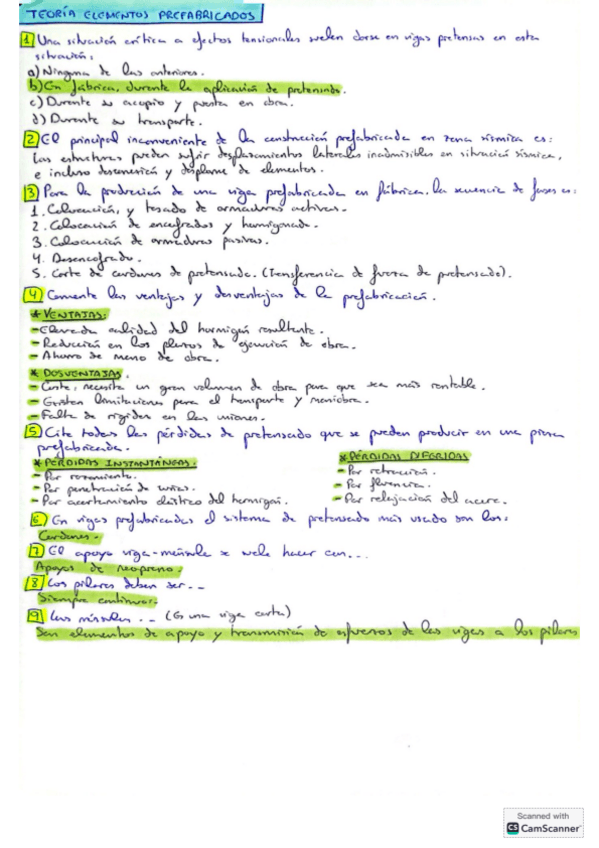 TEORÍA ELEMENTOS PREFABRICADOS
1 Una situación crítica a efectos tensionales suelen darse en vigas pretensas en esta
situación:
a) Ninguna de las anteriores.
b) En fábrica, durante la aplicación de pretensado.
c) Durante su acopio y puesta en obra.
d) Durante su transporte.
2 El principal inconveniente de la construcción prefabricada en zona sísmica es:
Las estructuras pueden sufrir desplazamientos laterales inadmisibles en situación sísmica,
e incluso desconexión y desplome de elementos.
3 Para la producción de una viga prefabricada en fábrica. la secuencia de fases es:
1. Colocación, y tesado de armaduras activas.
2. Colocación de encofrados y hormigonado.
3. Colocación de armaduras pasivas.
4. Desencofrado.
5. Corte de cordones de pretensado. (Transferencia de fuerza de pretensado).
4 Comente las ventajas y desventajas de la prefabricación.
* VENTAJAS:
- Elevada calidad del hormigón resultante.
- Reducción en los plazos de ejecución de obra.
- Ahorro de mano de obra.
* DESVENTAJAS.
- Coste, necesita un gran volumen de obra para que sea más rentable.
- Existen limitaciones para el transporte y maniobra.
- Falta de rigidez en las uniones.
5 Cite todas las pérdidas de pretensado que se pueden producir en una pieza
prefabricada.
* PÉRDIDAS INSTANTÁNEAS.
- Por rozamiento.
- Por penetración de cuñas.
- Por acortamiento elástico del hormigón.
* PÉRDIDAS DIFERIDAS
- Por retracción.
- Por fluencia.
- Por relajación del acero.
6 En vigas prefabricadas el sistema de pretensado más usado son los:
Cordones.
7 El apoyo viga-ménsula se suele hacer con...
Apoyos de neopreno.
8 Los pilares deben ser...
Siempre continuos.
9 Las ménsulas... (Es una viga corta)
Son elementos de apoyo y transmisión de esfuerzos de las vigas a los pilares
Scanned with
CS CamScanner